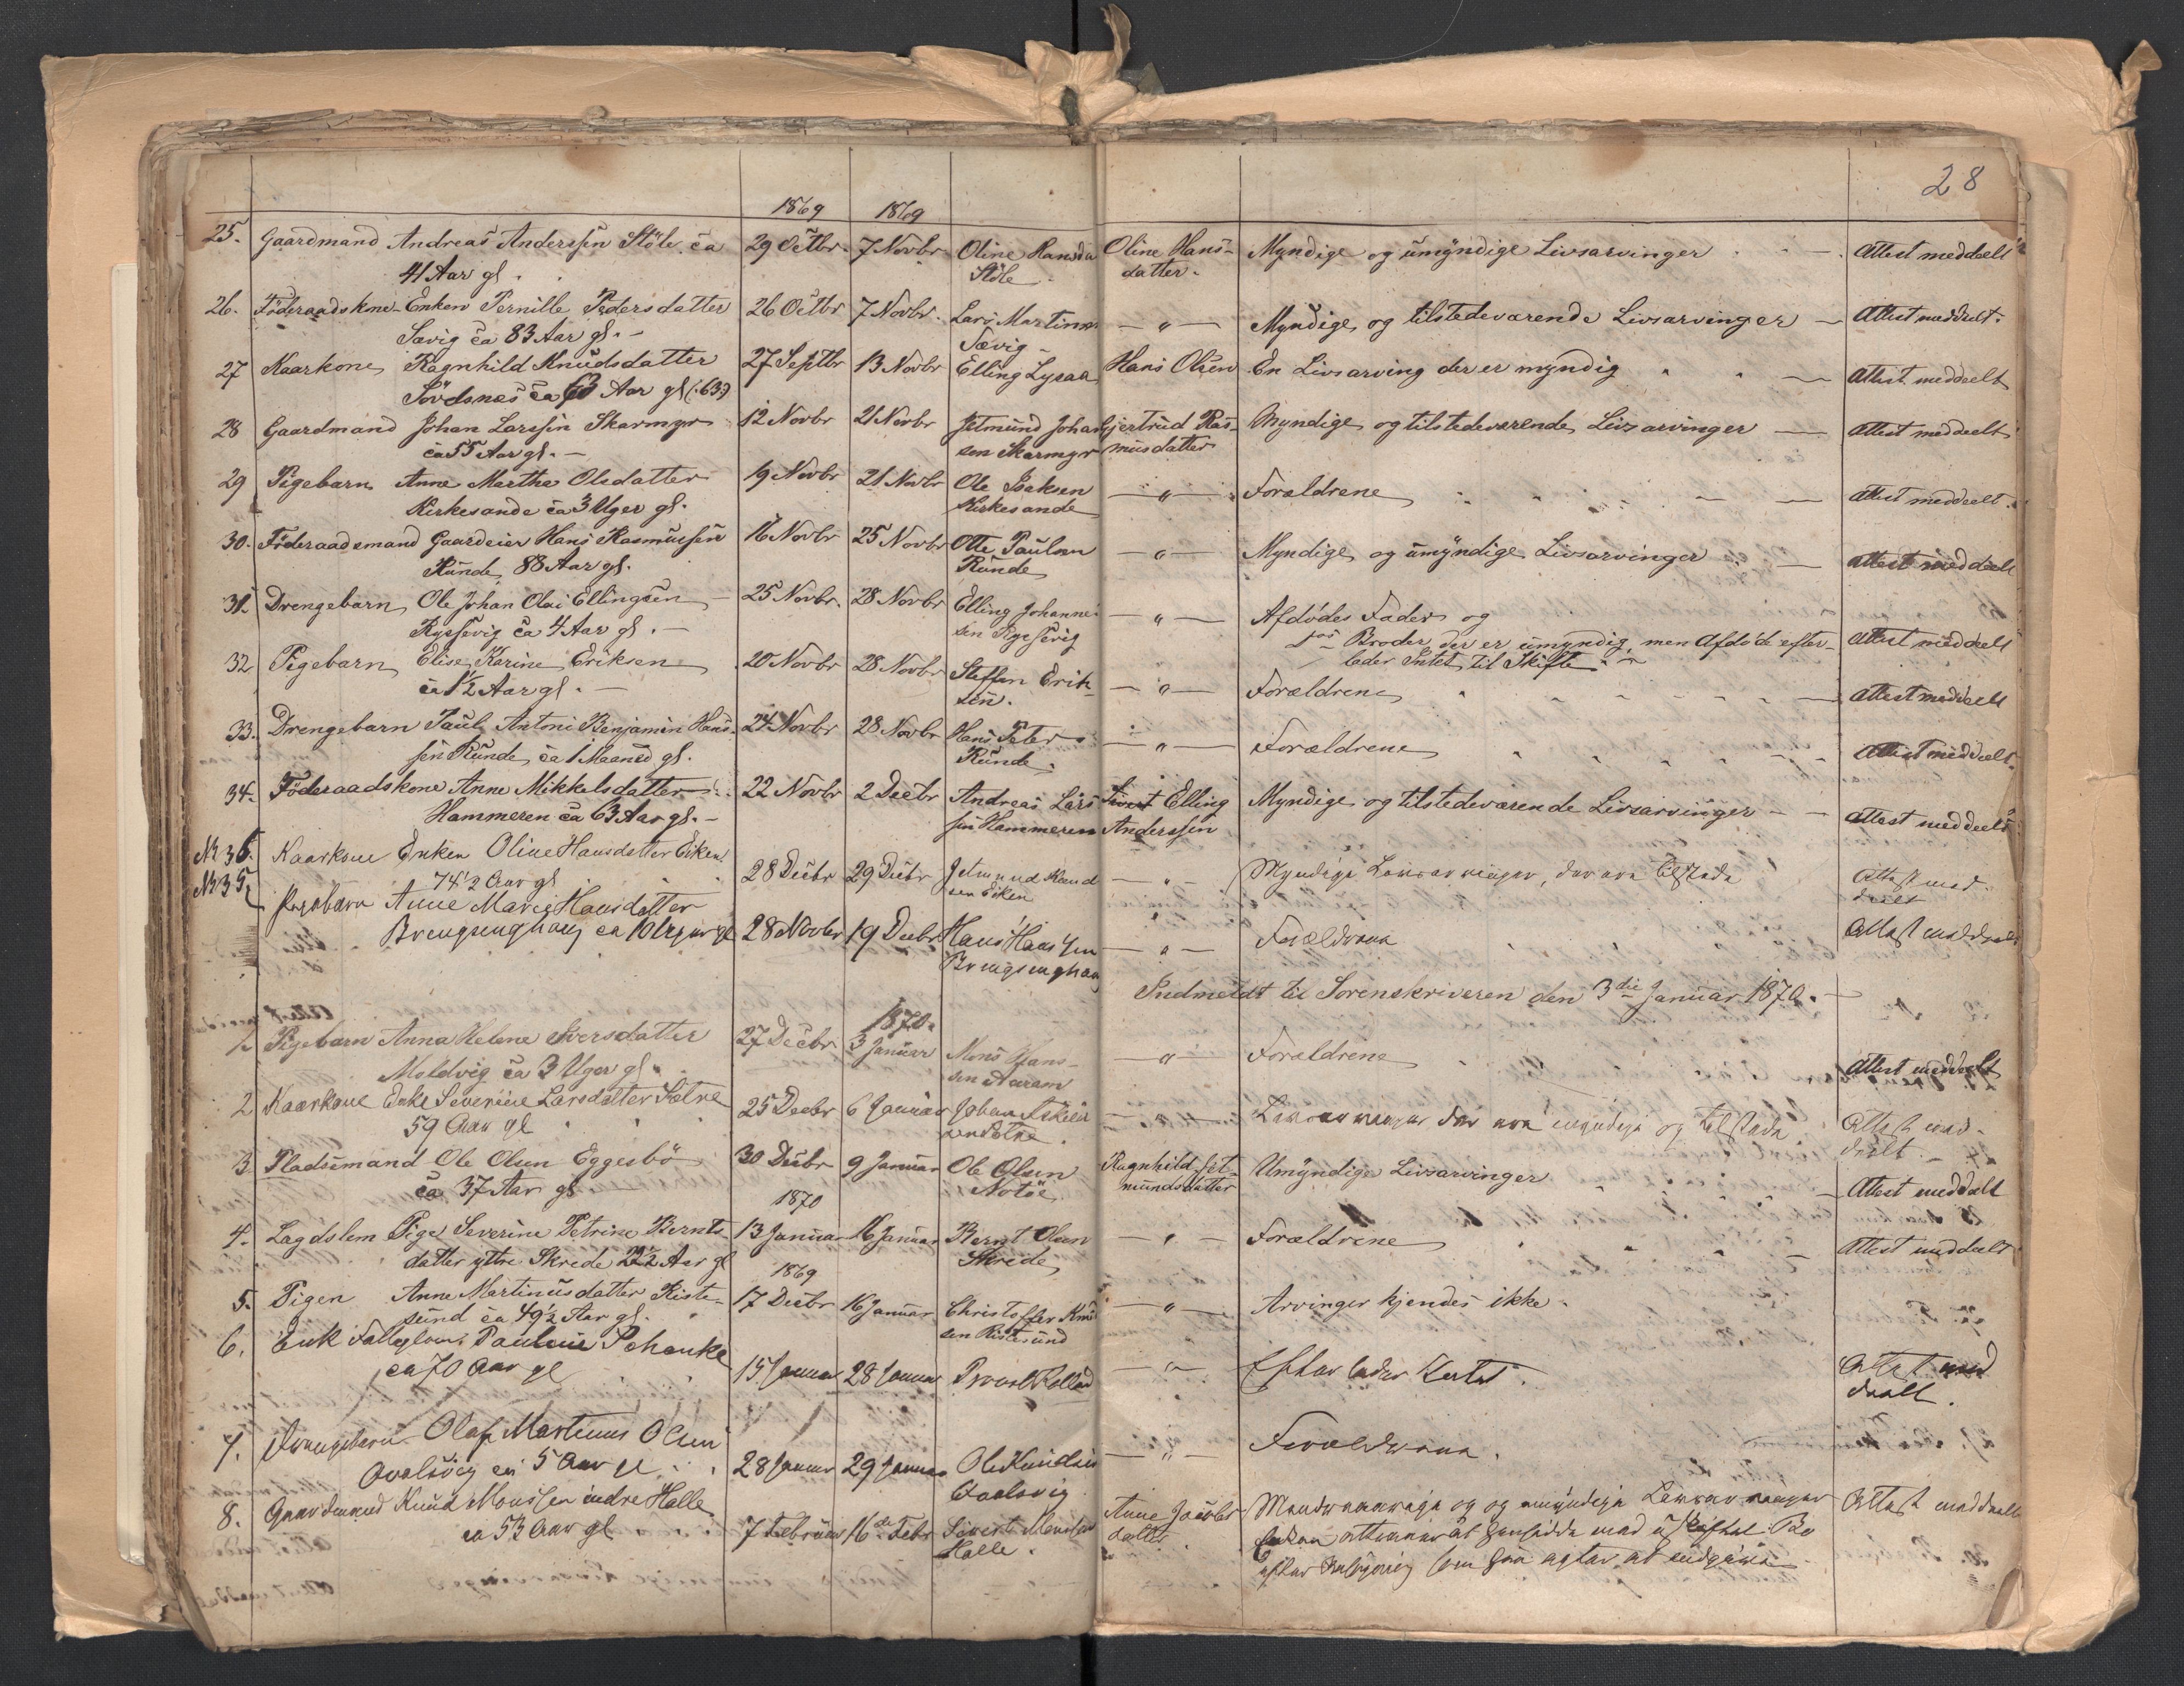 28
1869 1869
25. Gaardmand Andreas Anderssen Stöle ca 29 Octbr. 7 Novbr. Oline Hansda Oline Hans- Myndige og umyndige Livsarvinger Attest meddeelt
41 Aar gl. Stöle datter.
26. Föderaadskone Enken Pernille Pedersdatter 26 Octbr 7 Novbr. Lars Martinus — " — Myndige og tilstedeværende Livsarvinger — Attest meddeelt.
Sævig ca 83 Aar gl. — Sævig
27 Kaarkone Ragnhild Knudsdatter 27 Septbr 13 Novbr Elling Hans Olsen En Livsarving der er myndig " " — Attest meddeelt
Aar gl (: 63 :)
28 Gaardmand Johan Larssen Skarmyr 12 Novbr 21 Novbr Jetmund Johan Gjertrud Ras- Myndige og tilstedeværende Livsarvinger — Attest meddeelt
ca 55 Aar gl. — sen Skarmyr musdatter
29 Pigebarn Anne Marthe Olsdatter 19 Novbr 21 Novbr Ole Isaksen — " — Forældrene Attest meddeelt.
Kirkesande ca 3 Uger gl. Kirkesande
30. Föderaadsmand Gaardeier Hans Rasmussen 16 Novbr 25 Novbr Otte Paulsen — " — Myndige og umyndige Livsarvinger — Attest meddeelt
Runde, 88 Aar gl. Runde
31 Drengebarn Ole Johan Olai Ellingsen 25 Novbr. 28 Novbr Elling Johanne- — " — Afdødes Fader og
ca 4 Aar gl. — sen Broder der er umyndig, men Afdøde efter- Attest meddeelt
32 Pigebarn Elise Karine Eriksen 20 Novbr 28 Novbr Steffen Erik- lader Intet til Skifte
ca 1½ Aar gl. — sen. — " — Forældrene Attest meddeelt
33. Drengebarn Paul Antoni Benjamin Hans- 24 Novbr 28 Novbr Hans Peter — " — Forældrene Attest meddeelt.
sen Runde, ca 1 Maaned gl. Runde
34. Föderaadskone Anne Mikkelsdatter 22 Novbr 2 Decbr Andreas Lars Sivert Elling Myndige og tilstedeværende Livsarvinger — Attest meddeelt
Hammeren ca 63 Aar gl. — sen Hammeren Anderssen
Nr 36. Kaarkone Enken Oline Hansdatter Eiken 28 Decbr 29 Decbr Jetmund Knud — " — Myndige Livsarvinger, der ere tilstede Attest med-
74½ Aar gl sen Eiken deelt
Nr 35, Pigebarn Anne Marie Hansdatter
ca 10 Uger gl 28 Novbr 19 Decbr Hans Hanssen — " — Forældrene Attest meddeelt
Indmeldt til Sorenskriveren den 3die Januar 1870. —
1870.
1. Pigebarn Anna Helene Iversdatter 27 Decbr 3 Januar Mons Hans- — " — Forældrene Attest meddeelt
Moldvig ca 3 Uger gl. sen Aaram
2 Kaarkone Enke Severine Larsdatter Sætre 25 Decbr 6 Januar Johan — " — Livsarvinger der ere myndige og tilstede. Attest med-
59 Aar gl deelt. —
3. Pladsemand Ole Olsen Eggesbö 30 Decbr 9 Januar Ole Olsen Ragnhild Jet- Umyndige Livsarvinger — Attest meddelt
ca 37 Aar gl — Notöe mundsdatter
1870
4. Lagdslem Pige Severine Petrine Bernts- 13 Januar 16 Januar Bernt Olsen — " — Forældrene Attest meddeelt
datter yttre Skrede 22½ Aar gl Skrede
1869
5. Pigen Anne Martinusdatter Riste- 17 Decbr 16 Januar Christoffer Knud — " — Arvinger kjendes ikke.
sund ca 49½ Aar gl. sen Ristesund
6. Enk Pauline Schanke
ca 70 Aar gl 15 Januar 28 Januar — " — Efterlader Intet. Attest med
deelt.
7. Drengebarn Olaf Martinus Olsen
ca 5 Aar gl 28 Januar 29 Januar Ole Knudsen — " — Forældrene.
8. Gaardmand Knud Monssen indre Halle 7 Februar 16de Febr Sivert Monssen Anne Jacobs Attest meddeelt
ca 53 Aar gl Halle. datter